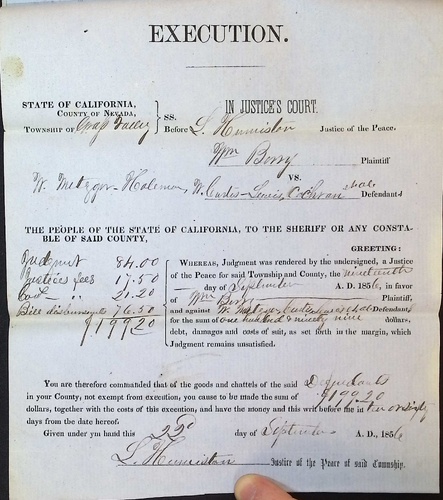 EXECUTION.
STATE OF CALIFORNIA,
COUNTY OF NEVADA,
TOWNSHIP OF Grass Valley
SS.
IN JUSTICE'S COURT.
Before L. Humiston Justice of the Peace.
Wm Berry Plaintiff
VS.
W. Metzger - Holeman, W. Curtis - Lewis Cochran et als Defendant
THE PEOPLE OF THE STATE OF CALIFORNIA, TO THE SHERIFF OR ANY CONSTA-
BLE OF SAID COUNTY,
GREETING:
Judgmnt 84.00
Justices fees 17.50
21.20
Bill disbursements 76.50
$199.20
WHEREAS, Judgment was rendered by the undersigned, a Justice
of the Peace for said Township and County, the nineteenth
day of September A. D. 1856, in favor
of Wm Berry Plaintiff,
and against W. Metzger Curtis et als Defendant
for the sum of one hundred & ninety nine dollars,
debt, damages and costs of suit, as set forth in the margin, which
Judgment remains unsatisfied.
You are therefore commanded that of the goods and chattels of the said Defendants
in your County, not exempt from execution, you cause to be made the sum of $199.20
dollars, together with the costs of this execution, and have the money and this writ before me in
days from the date hereof.
Given under ym hand this 22d day of September A. D., 1856
L. Humiston Justice of the Peace of said Township.